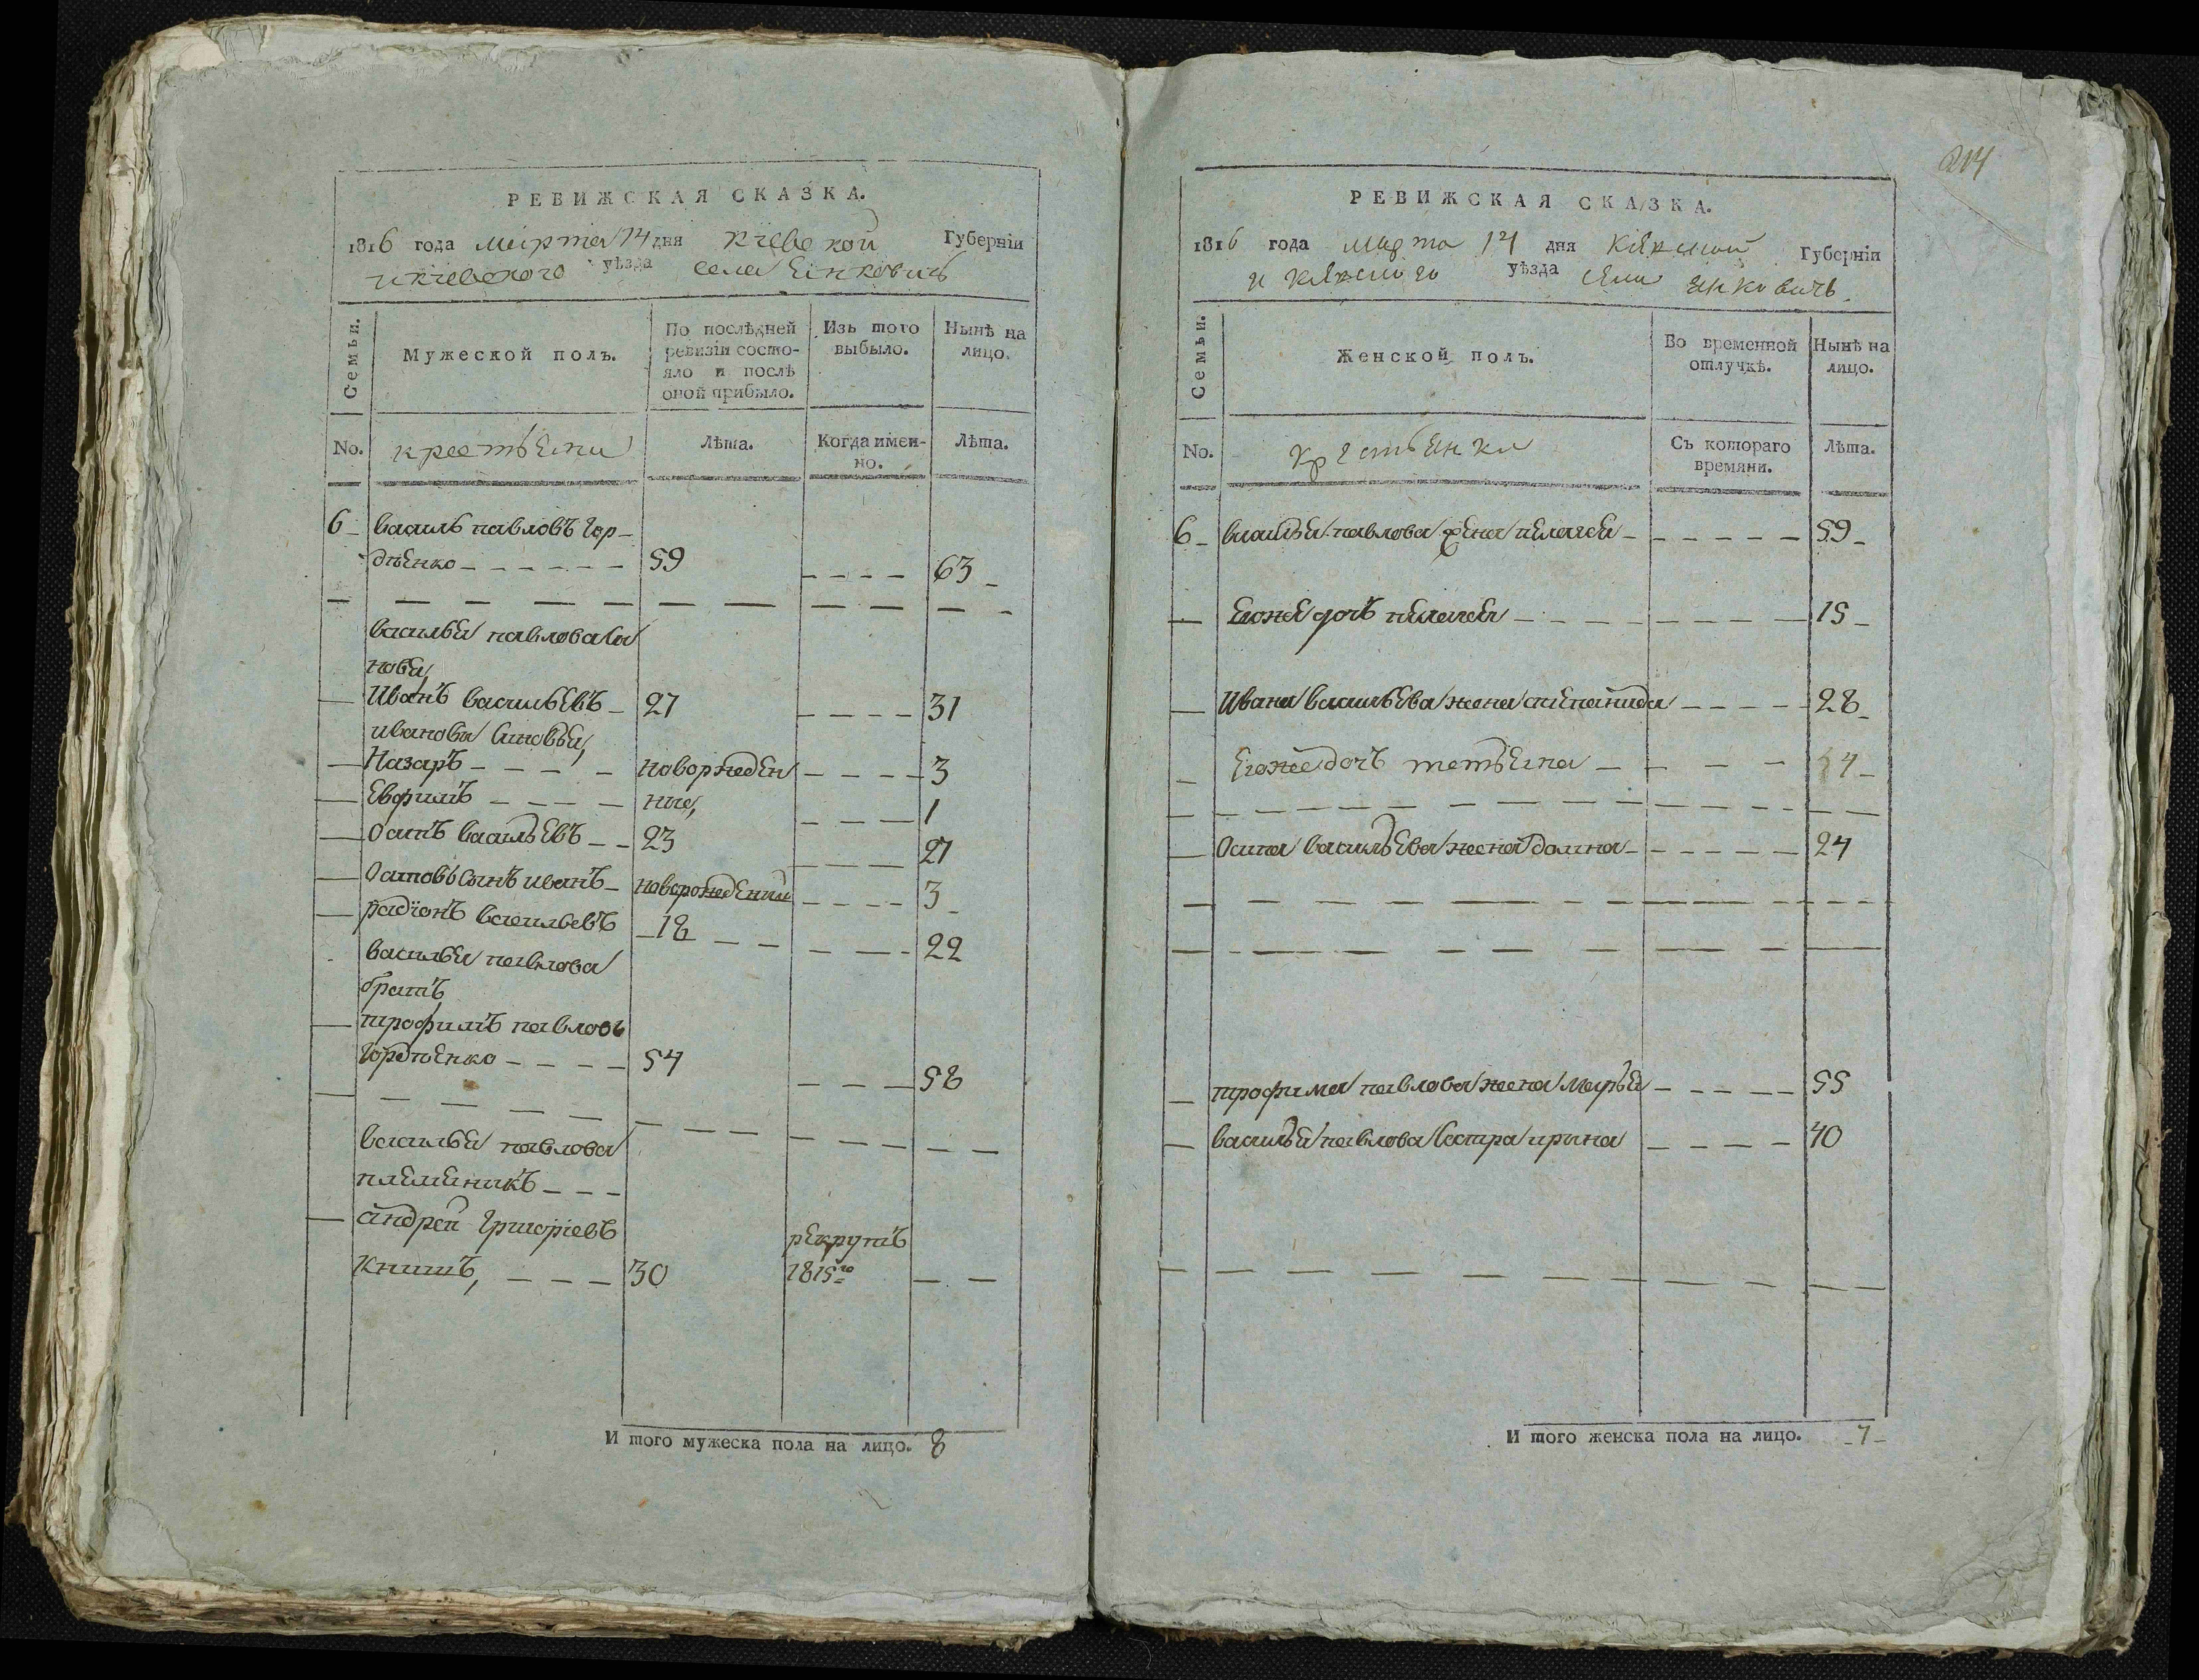 РЕВИЖСКАЯ СКАЗКА.
1816 года марта 14 дня Кіевской Губерніи
и Кіевского уѣзда села Янковичъ
Семьи.
Мужеской полъ.
По послѣдней ревизіи состо-
яло и послѣ
оной прибыло.
Изъ того
выбыло.
Нынѣ на
лицо.
No.
крестьяни
Лѣта.
Когда имен-
но.
Лѣта.
6 василь павловъ гор-
дѣенко 59 63
василья павлова си
новя,
Иванъ васильевъ 27 31
иванови синовья,
Назаръ новорожден 3
Евфимъ ные, 1
Осипъ васильевъ 23 27
Осиповъ сынъ иванъ новорожденни 3
радіонъ васильевъ 18 22
василья павлова
братъ
трофимъ павловъ
гордѣенко 54 58
василья павлова
племеникъ
андрей григоріевъ
книшъ, 30 рекрутъ 1815го
И того мужеска пола на лицо. 8
214
РЕВИЖСКАЯ СКАЗКА.
1816 года марта 14 дня Кіевской Губерніи
и Кіевского уѣзда села Янковичъ.
Семьи.
Женской полъ.
Во временной
отлучкѣ.
Нынѣ на
лицо.
No.
крестьянки
Съ котораго
времяни.
Лѣта.
6 василья павлова жена пелагея 59
Егоже дочъ пелагея 15
Ивана васильева жена степанида 28
Егоже дочъ тетьяна 4
Осипа васильева жена домна 24
трофима павлова жена марья 55
василья павлова сестра ирина 40
И того женска пола на лицо. 7